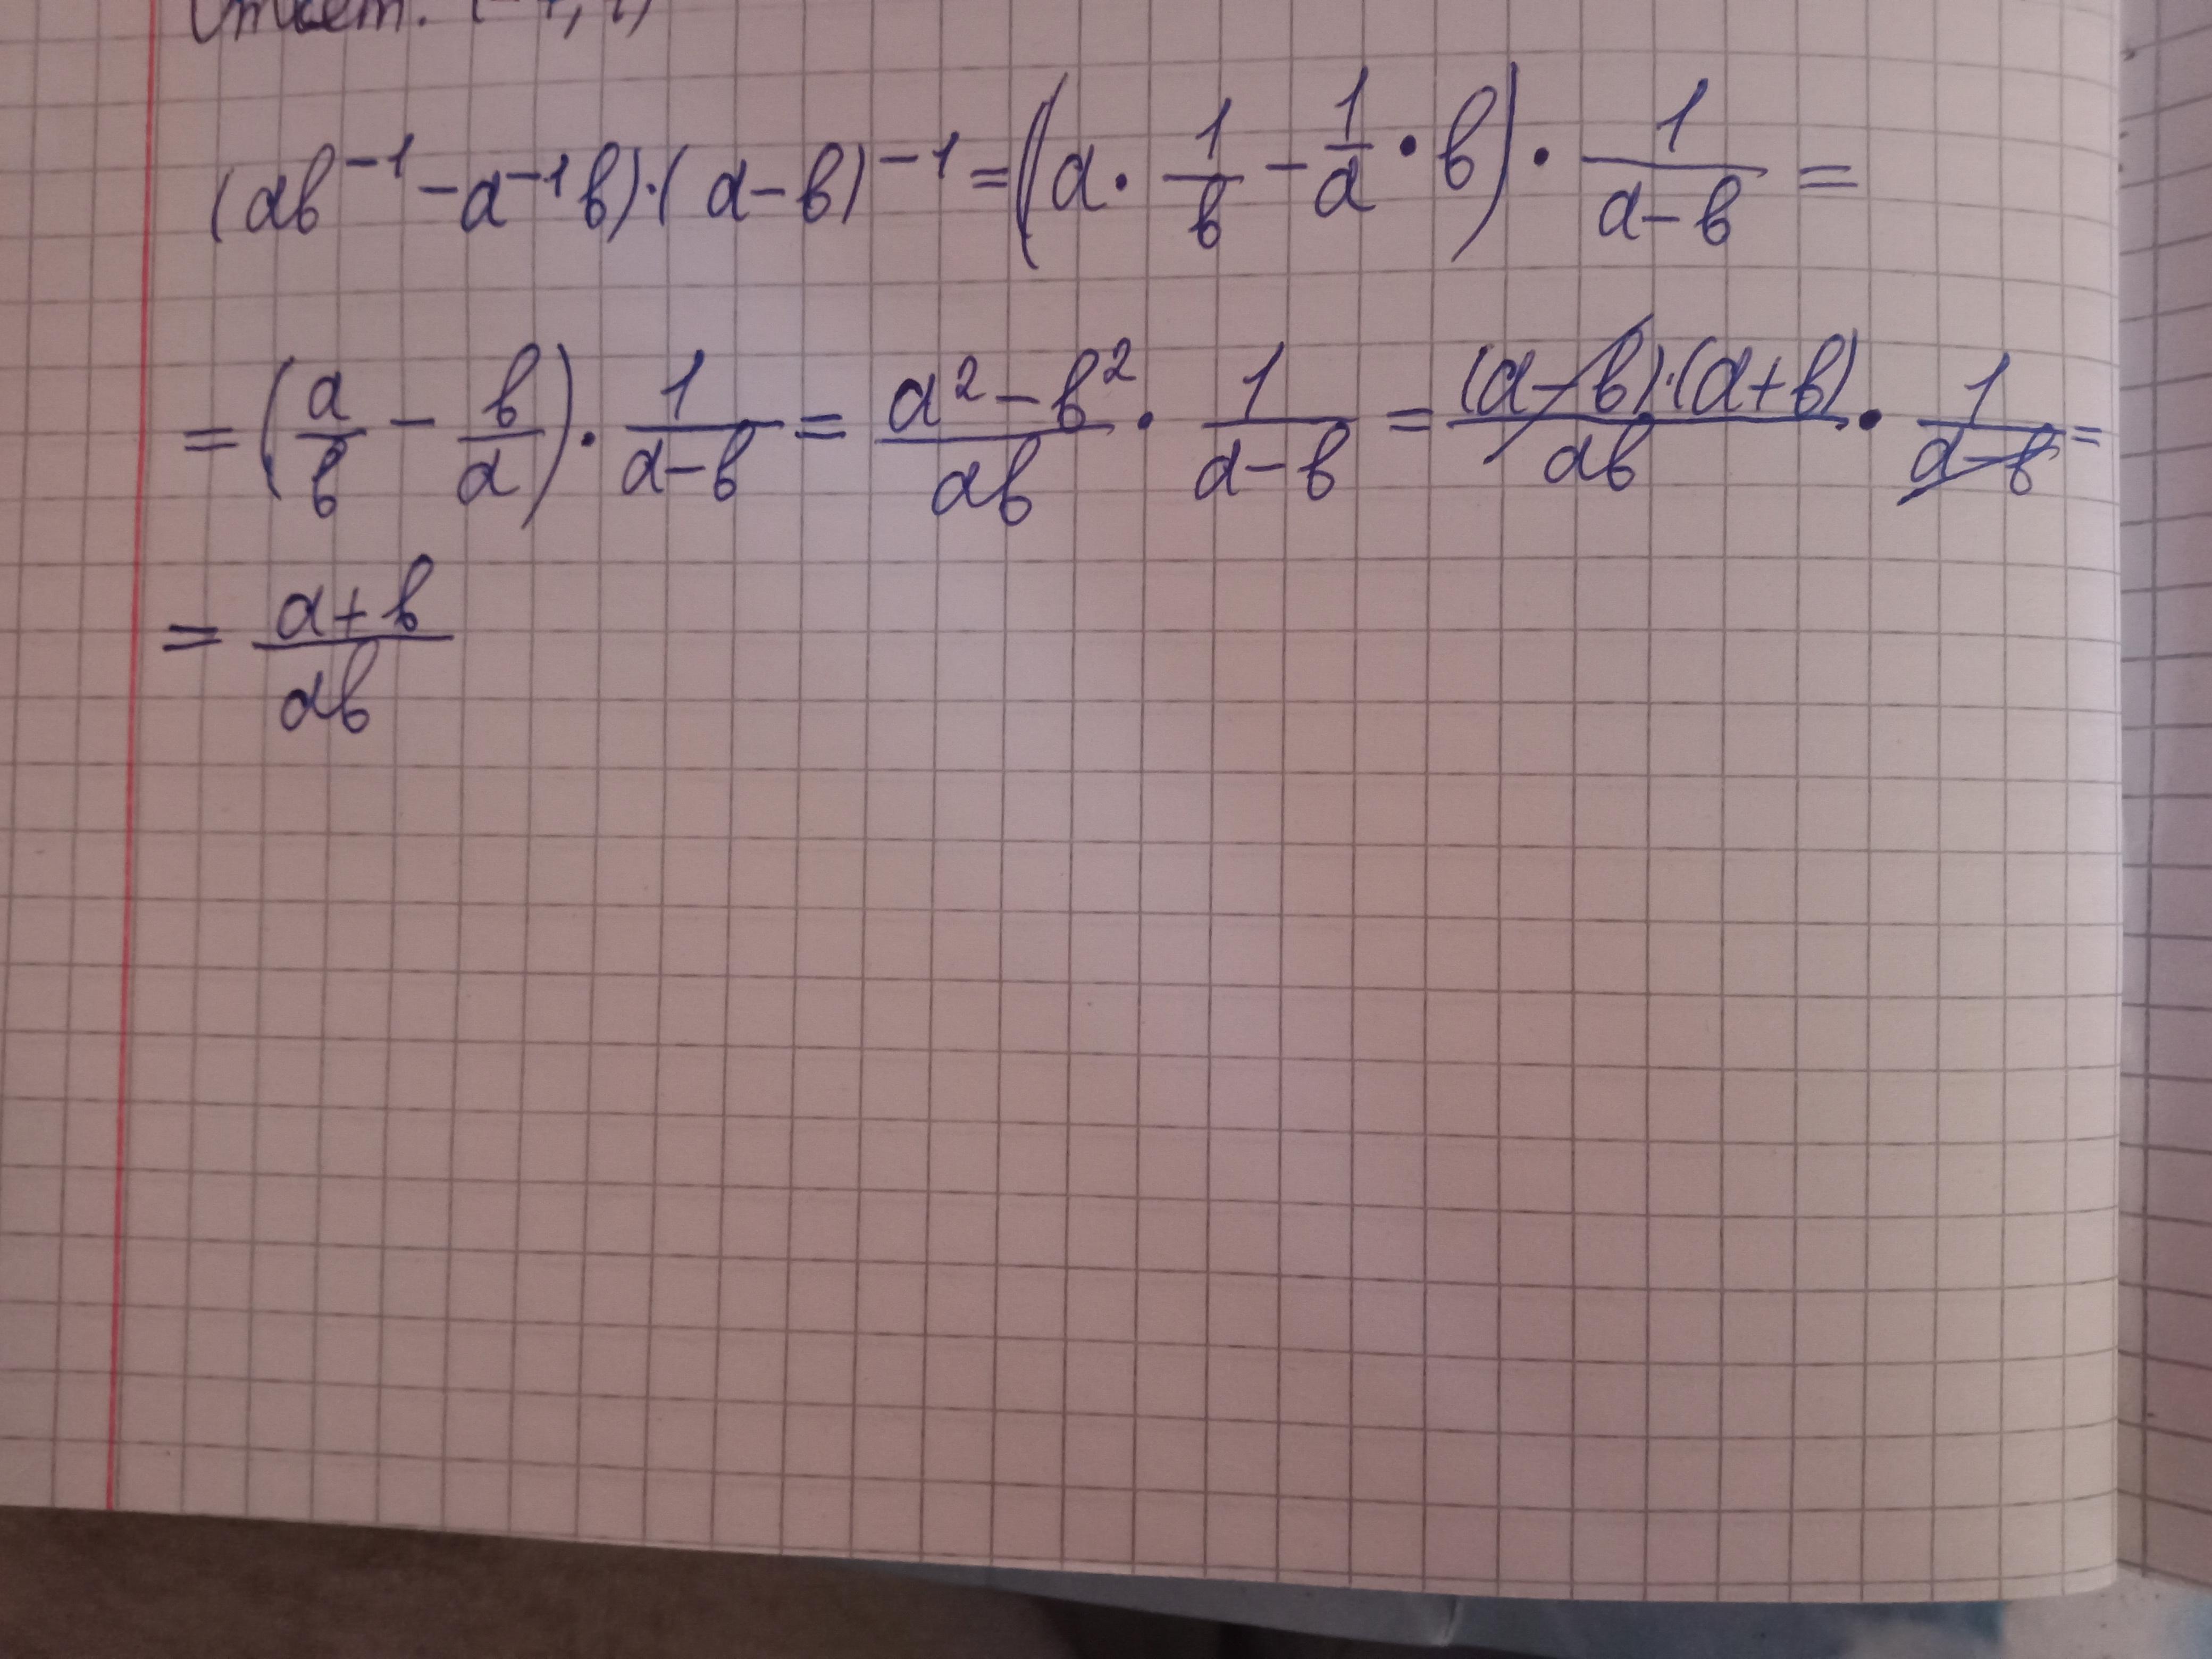 Ответ:
(ab⁻¹ - a⁻¹b)·(a-b)⁻¹ = (a · 1/b - 1/a · b) · 1/(a-b) =
= (a/b - b/a) · 1/(a-b) = (a² - b²)/(ab) · 1/(a-b) = ((a-b)·(a+b))/(ab) · 1/(a-b) =
= (a+b)/(ab)